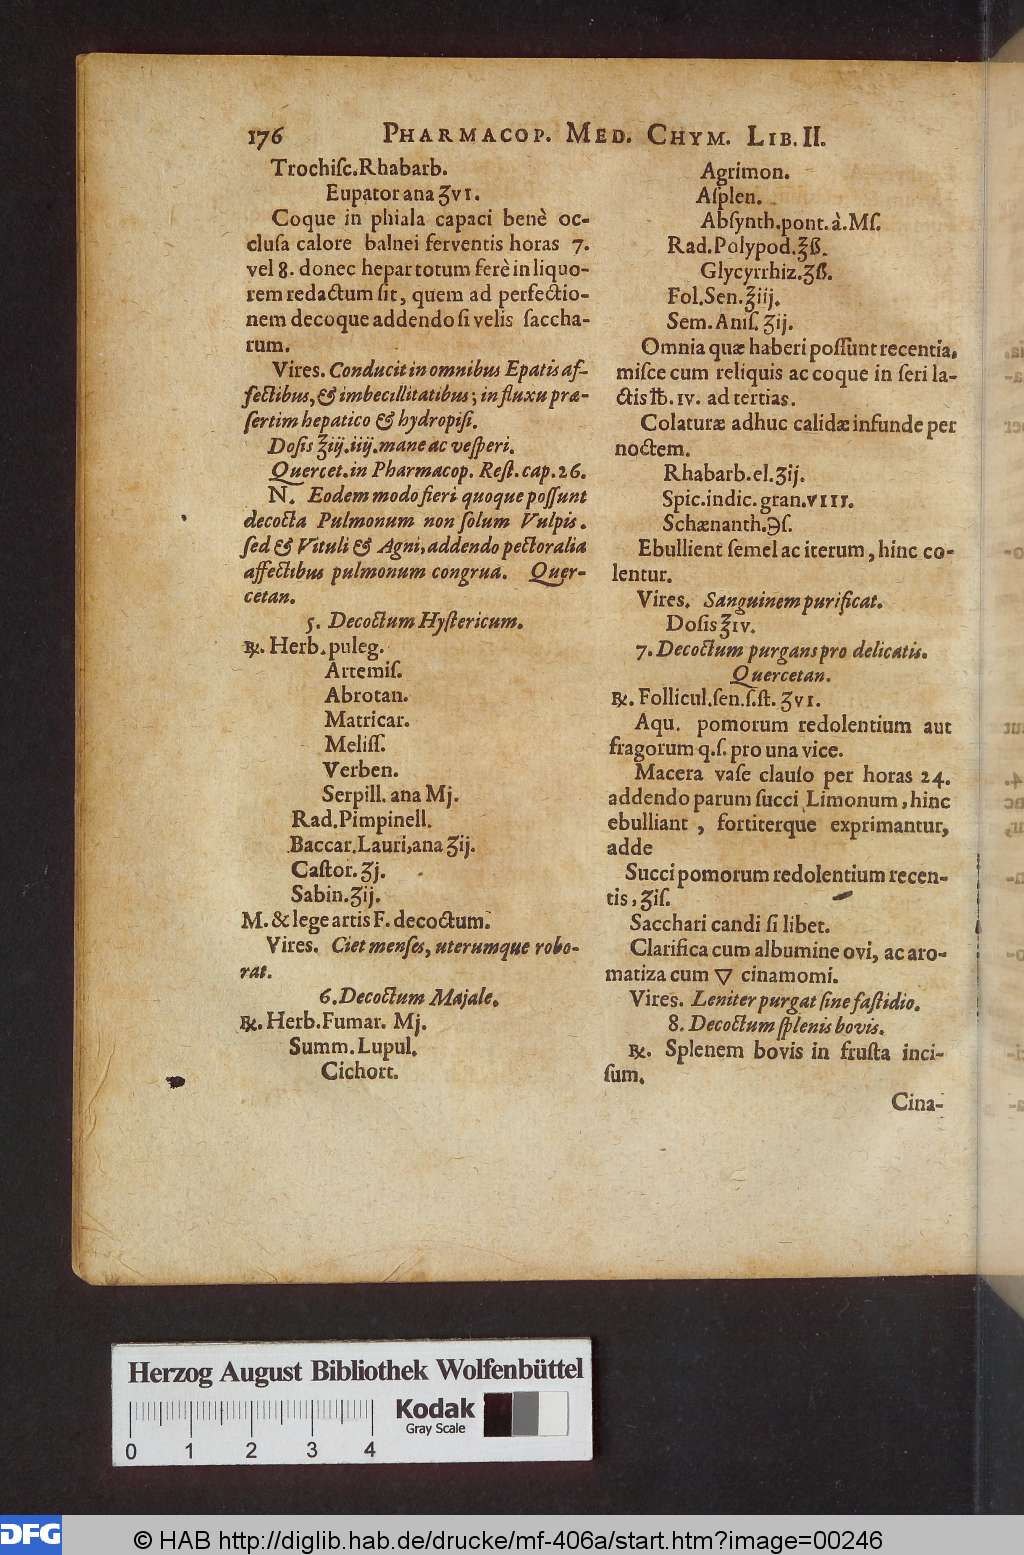 176 PHARMACOP. MED. CHYM. LIB. II.
Trochiſc. Rhabarb.
Eupator ana ʒvı.
Coque in phiala capaci benè oc-
cluſa calore balnei ferventis horas 7.
vel 8. donec hepar totum ferè in liquo-
rem redactum ſit, quem ad perfectio-
nem decoque addendo ſi velis ſaccha-
rum.
Vires. Conducit in omnibus Epatis af-
fectibus, & imbecillitatibus; in fluxu præ-
ſertim hepatico & hydropiſi.
Doſis ℥iij. iiij. mane ac veſperi.
Quercet. in Pharmacop. Reſt. cap. 26.
N. Eodem modo fieri quoque poſſunt
decocta Pulmonum non ſolum Vulpis.
ſed & Vituli & Agni, addendo pectoralia
affectibus pulmonum congrua. Quer-
cetan.
5. Decoctum Hyſtericum.
℞. Herb. puleg.
Artemiſ.
Abrotan.
Matricar.
Meliſſ.
Verben.
Serpill. ana Mj.
Rad. Pimpinell.
Baccar. Lauri, ana ʒij.
Caſtor. ʒj.
Sabin. ʒij.
M. & lege artis F. decoctum.
Vires. Ciet menſes, uterumque robo-
rat.
6. Decoctum Majale.
℞. Herb. Fumar. Mj.
Summ. Lupul.
Cichort.
Agrimon.
Aſplen.
Abſynth. pont. à. Mſ.
Rad. Polypod. ℥ß.
Glycyrrhiz. ʒß.
Fol. Sen. ℥iij.
Sem. Aniſ. ʒij.
Omnia quæ haberi poſſunt recentia,
miſce cum reliquis ac coque in ſeri la-
ctis ℔. ıv. ad tertias.
Colaturæ adhuc calidæ infunde per
noctem.
Rhabarb. el. ʒij.
Spic. indic. gran. vııı.
Schænanth. ℈ſ.
Ebullient ſemel ac iterum, hinc co-
lentur.
Vires. Sanguinem purificat.
Doſis ℥ıv.
7. Decoctum purgans pro delicatis.
Quercetan.
℞. Follicul. ſen. ſ. ſt. ʒvı.
Aqu. pomorum redolentium aut
fragorum q. ſ. pro una vice.
Macera vaſe clauſo per horas 24.
addendo parum ſucci Limonum, hinc
ebulliant, fortiterque exprimantur,
adde
Succi pomorum redolentium recen-
tis, ʒiſ.
Sacchari candi ſi libet.
Clarifica cum albumine ovi, ac aro-
matiza cum ▽ cinamomi.
Vires. Leniter purgat ſine faſtidio.
8. Decoctum ſplenis bovis.
℞. Splenem bovis in fruſta inci-
ſum.
Cina-
Herzog August Bibliothek Wolfenbüttel
Kodak
Gray Scale
0 1 2 3 4
DFG
© HAB http://diglib.hab.de/drucke/mf-406a/start.htm?image=00246